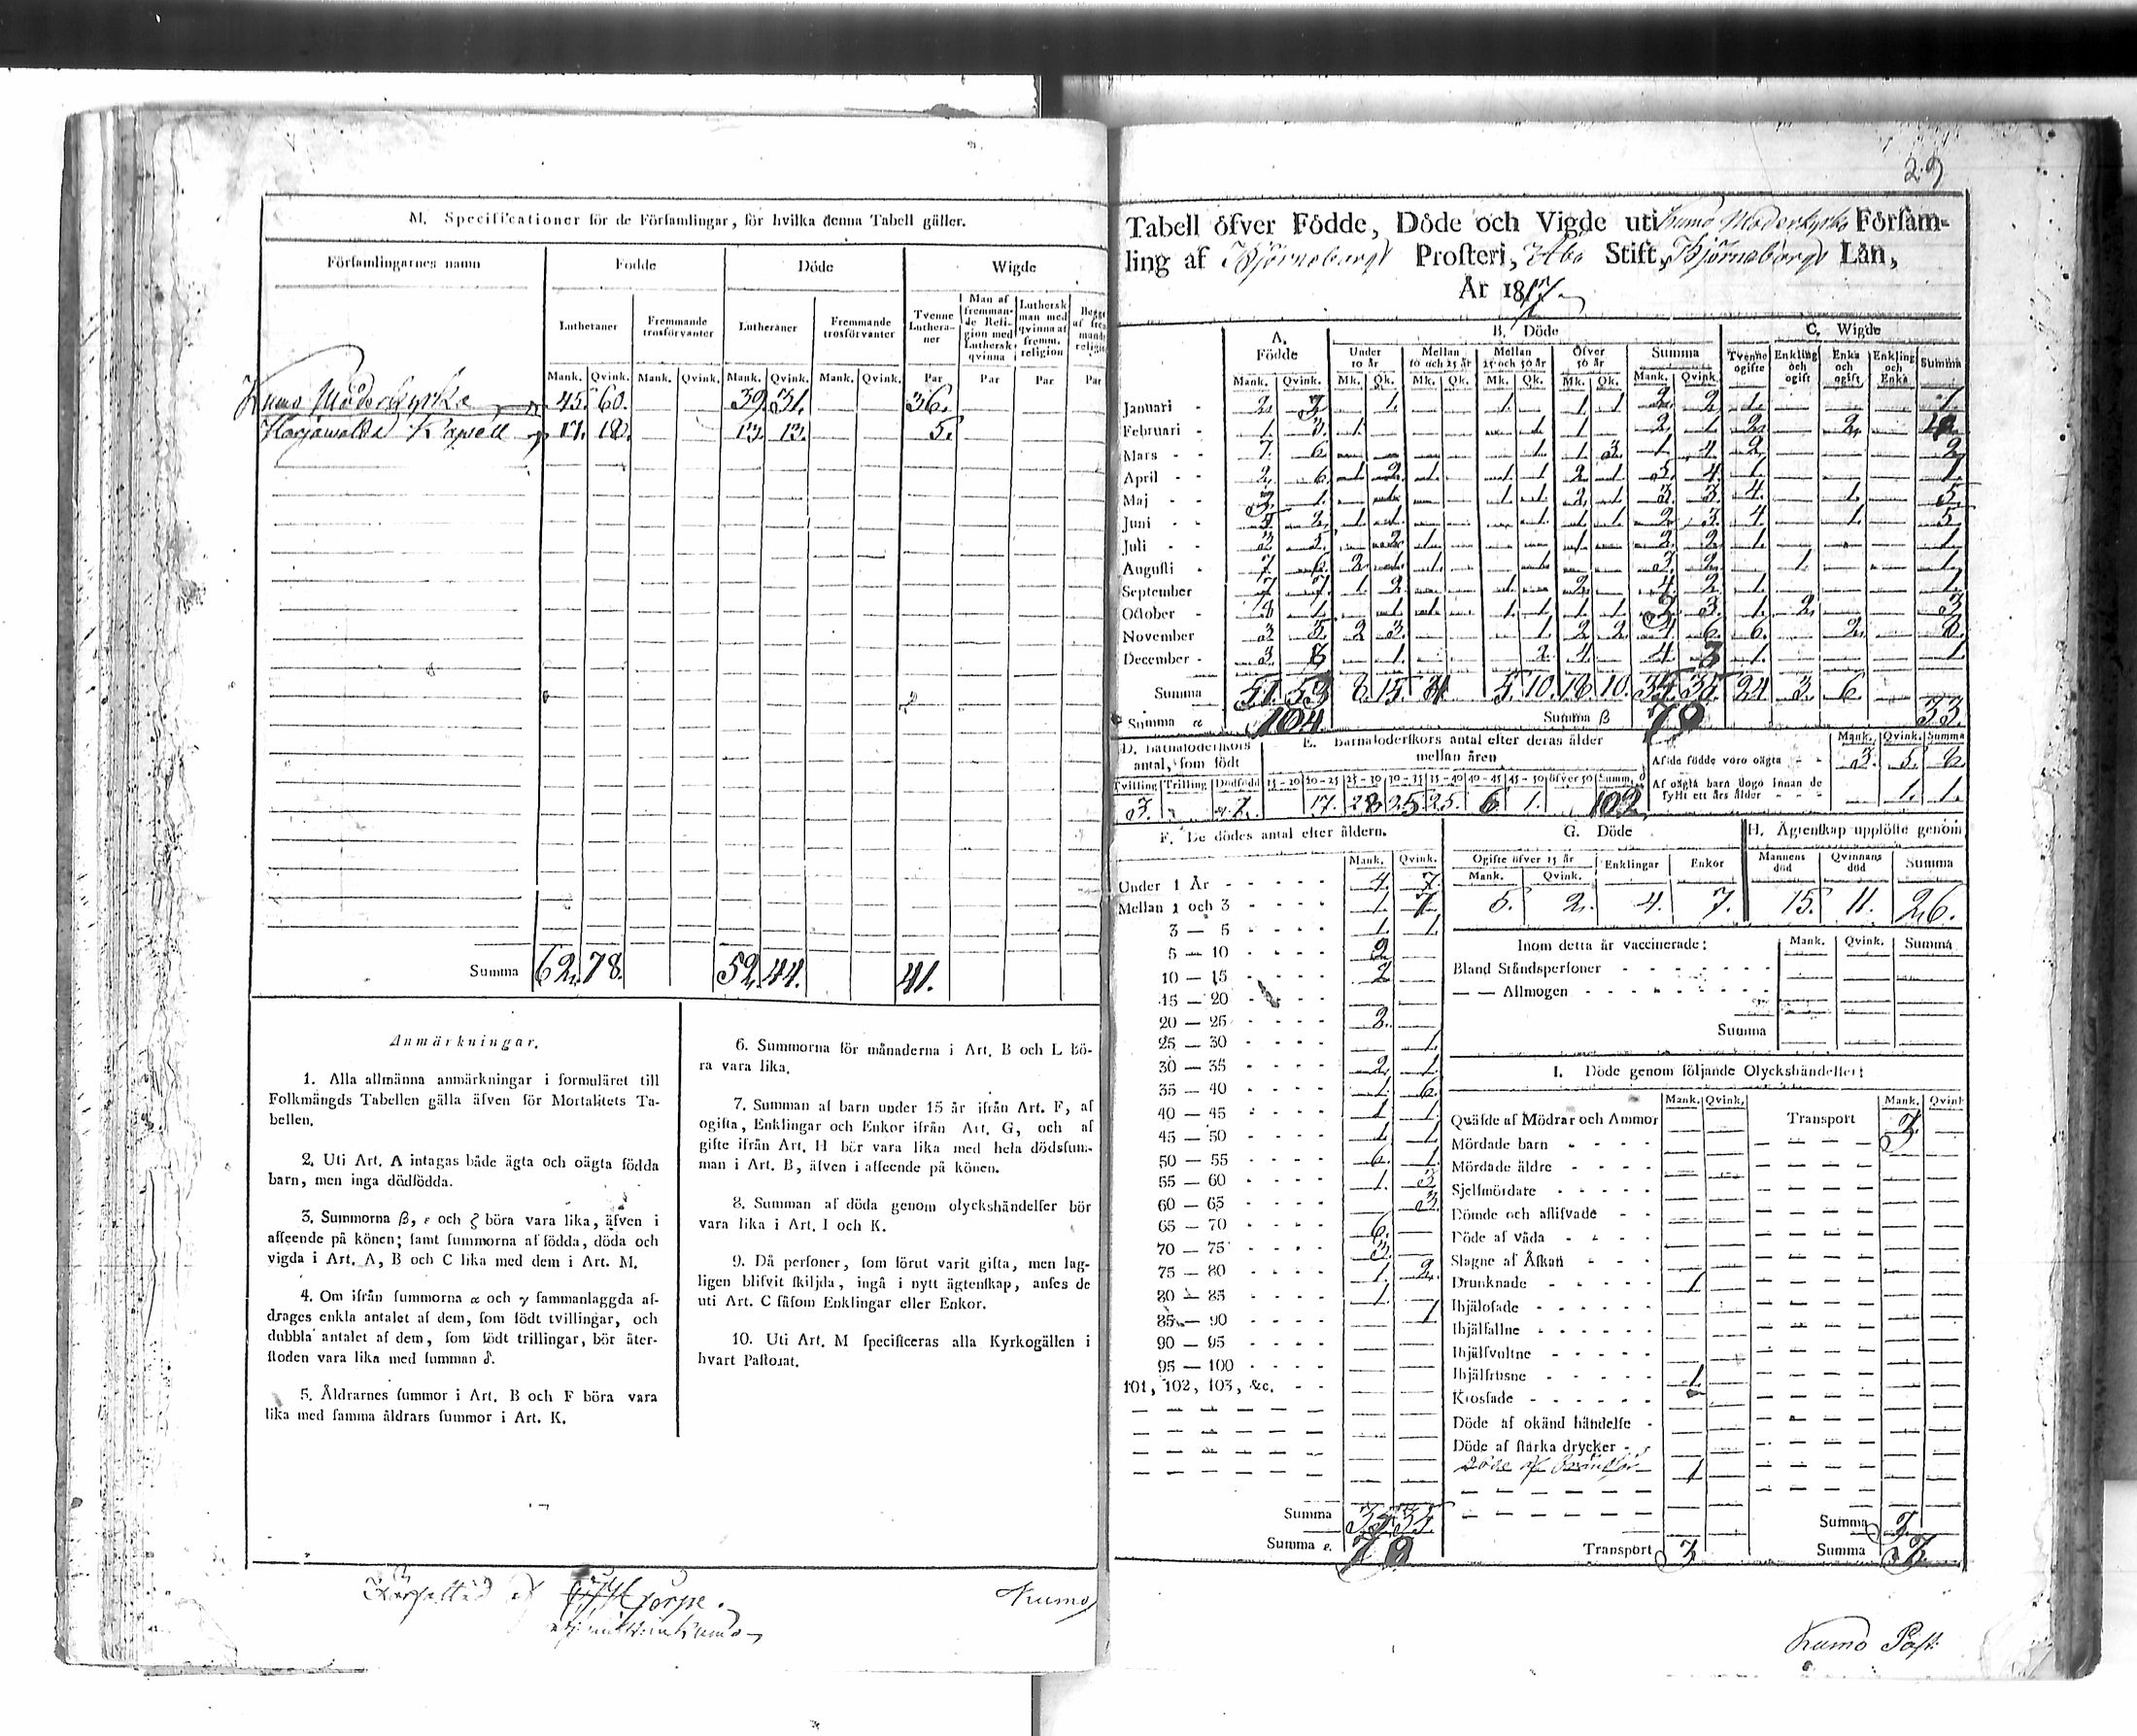 M. Specificationer för de Församlingar, för hvilka denna Tabell gäller.
Församlingarnes namn Födde Döde Wigde
Lutheraner Fremmande trosförvanter Lutheraner Fremmande trosförvanter Tvenne Lutheraner Man af fremmande Religion med Luthersk qvinna Luthersk man med qvinna af fremm. religion
Mank. Qvink. Mank. Qvink. Mank. Qvink. Mank. Qvink. Par Par Par Par
Kumo Moderkyrka 45. 60. 39. 31. 36.
Harjawalda Kapell 17. 18. 13. 13. 5.
Summa 62. 78. 52. 44. 41.
Anmärkningar.
1. Alla allmänna anmärkningar i formuläret till
Folkmängds Tabellen gälla äfven för Mortalitets Ta-
bellen.
2. Uti Art. A intagas både ägta och oägta födda
barn, men inga dödfödda.
3. Summorna β, ε och ζ böra vara lika, äfven i
affeende på könen; samt summorna af födda, döda och
vigda i Art. A, B och C lika med dem i Art. M.
4. Om ifrån summorna α och γ sammanlaggda af-
drages enkla antalet af dem, som födt tvillingar, och
dubbla antalet af dem, som födt trillingar, bör åter-
stoden vara lika med summan δ.
5. Åldrarnes summor i Art. B och F böra vara
lika med samma åldrars summor i Art. K.
6. Summorna för månaderna i Art. B och L bö-
ra vara lika.
7. Summan af barn under 15 år ifrån Art. F, af
ogifta, Enklingar och Enkor ifrån Art. G, och af
gifte ifrån Art. H bör vara lika med hela dödssum-
man i Art. B, äfven i affeende på könen.
8. Summan af döda genom olyckshändelser bör
vara lika i Art. I och K.
9. Då personer, som förut varit gifta, men lag-
ligen blifvit skiljda, ingå i nytt ägtenskap, anses de
uti Art. C såsom Enklingar eller Enkor.
10. Uti Art. M specificeras alla Kyrkogällen i
hvart Pastorat.
Kumo
29
Tabell öfver Födde, Döde och Vigde uti Kumo Moderkyrko Försam-
ling af Björneborgs Prosteri, Åbo Stift, Björneborgs Län,
År 1817
A. Födde B. Döde C. Wigde
Under 10 år Mellan 10 och 25 år Mellan 25 och 50 år Öfver 50 år Summa Tvenne ogifte Enkling och ogift Enka och ogift Enkling och Enka Summa
Mank. Qvink. Mk. Qk. Mk. Qk. Mk. Qk. Mk. Qk. Mank. Qvink.
Januari 2. 3. 1. 1. 1. 1. 2. 2. 1. 1.
Februari 1. 3. 1. 1. 1. 2. 1. 2. 2.
Mars 7. 6. 1. 1. 3. 1. 4. 2. 2.
April 2. 6. 1. 2. 1. 1. 1. 2. 1. 5. 4. 1. 1.
Maj 1. 1. 1. 2. 1. 3. 3. 4. 1. 5.
Juni 5. 2. 1. 1. 1. 1. 1. 2. 3. 4. 1. 5.
Juli 2. 1. 1. 2. 2. 1. 1.
Augusti 7. 6. 2. 1. 1. 3. 2. 1. 1.
September 1. 2. 1. 2. 4. 2. 1. 1.
October 1. 1. 1. 1. 1. 1. 1. 3. 1. 2. 3.
November 3. 5. 2. 3. 1. 2. 2. 4. 6. 6. 2. 8.
December 3. 1. 2. 4. 4. 3 1. 1.
Summa 51. 53 8. 15. 4 5. 10. 18. 10. 35. 35. 24. 3. 6. 33.
Summa α 104 Summa β 70
D. Barnaföderskors antal, som födt
E. Barnaföderskors antal efter deras ålder mellan åren
Tvilling Trilling Dödfödd 15-20 20-25 25-30 30-35 35-40 40-45 45-50 öfver 50 Summ. δ
3. 1. 17. 28 25 25. 6 1. 102
Mank. Qvink. Summa
Af de födde voro oägta 3. 5. 8.
Af oägta barn dogo innan de fyllt ett års ålder 1. 1.
F. De dödes antal efter åldern.
Mank. Qvink.
Under 1 År 4. 7.
Mellan 1 och 3 1. 7
3 — 5 1. 1.
5 — 10 2.
10 — 15 2
15 — 20
20 — 25 2.
25 — 30 1.
30 — 35 2. 1.
35 — 40 1. 6.
40 — 45 1 1.
45 — 50 1. 1
50 — 55 6. 1.
55 — 60 1. 3
60 — 65 3.
65 — 70 6.
70 — 75 3.
75 — 80 1. 2.
80 — 85 1.
85 — 90 1
90 — 95
95 — 100
101, 102, 103, &c.
Summa 35. 35.
Summa ε. 70
G. Döde
Ogifte öfver 15 år Enklingar Enkor
Mank. Qvink.
5. 2. 4. 7.
H. Ägtenskap upplöste genom
Mannens död Qvinnans död Summa
15. 11. 26.
Inom detta år vaccinerade: Mank. Qvink. Summa
Bland Ståndspersoner
— — Allmogen
Summa
I. Döde genom följande Olyckshändelser:
Mank. Qvink. Mank. Qvink
Qväfde af Mödrar och Ammor Transport 3.
Mördade barn
Mördade äldre
Sjelfmördare
Dömde och aflifvade
Döde af våda
Slagne af Åskan
Drunknade 1.
Ihjälosade
Ihjälfallne
Ihjälsvultne
Ihjälfrusne 1.
Krossade
Döde af okänd händelse
Döde af starka drycker
Döde af 1
Summa 3.
Transport 3 Summa 3.
Kumo Past.